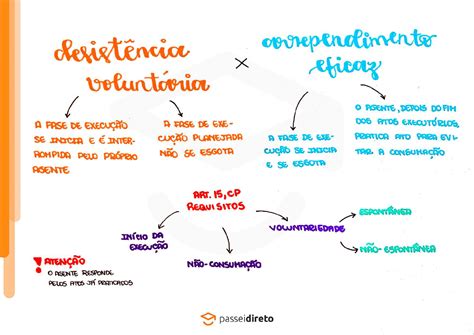 desistência
voluntária
×
arrependimento
eficaz
A FASE DE EXECUÇÃO
SE INICIA E É INTER-
ROMPIDA PELO PRÓPRIO
AGENTE
A FASE DE EXE-
CUÇÃO PLANEJADA
NÃO SE ESGOTA
A FASE DE EXE-
CUÇÃO SE INICIA
E SE ESGOTA
O AGENTE, DEPOIS DO FIM
DOS ATOS EXECUTÓRIOS,
PRATICA ATO PARA EVI-
TAR A CONSUMAÇÃO
ART. 15, CP
REQUISITOS
INÍCIO DA
EXECUÇÃO
NÃO-CONSUMAÇÃO
VOLUNTARIEDADE
ESPONTÂNEA
NÃO-ESPONTÂNEA
! ATENÇÃO
O AGENTE RESPONDE
PELOS ATOS JÁ PRATICADOS
passeidireto